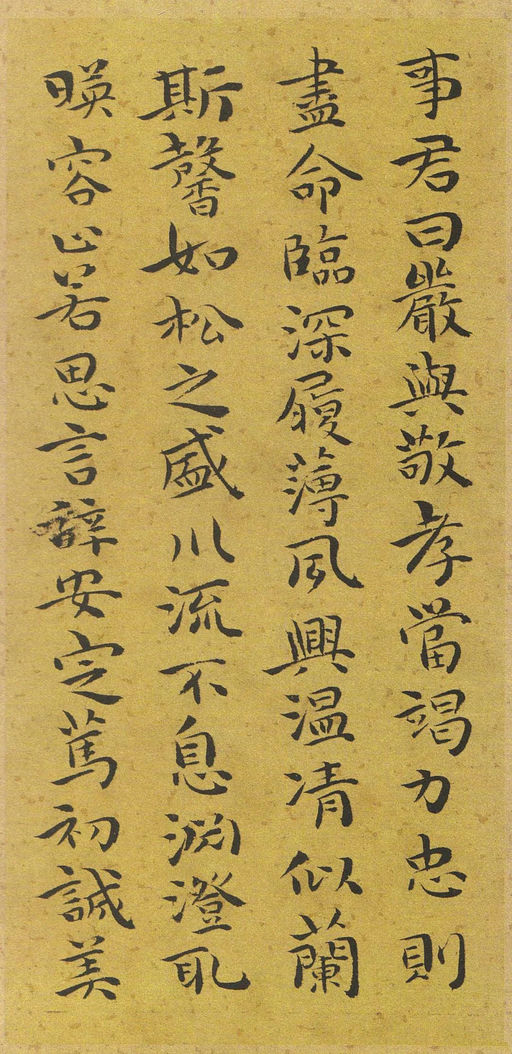 事君曰嚴與敬孝當竭力忠則
盡命臨深履薄夙興温凊似蘭
斯馨如松之盛川流不息渊澄取
暎容止若思言辭安定篤初誠美